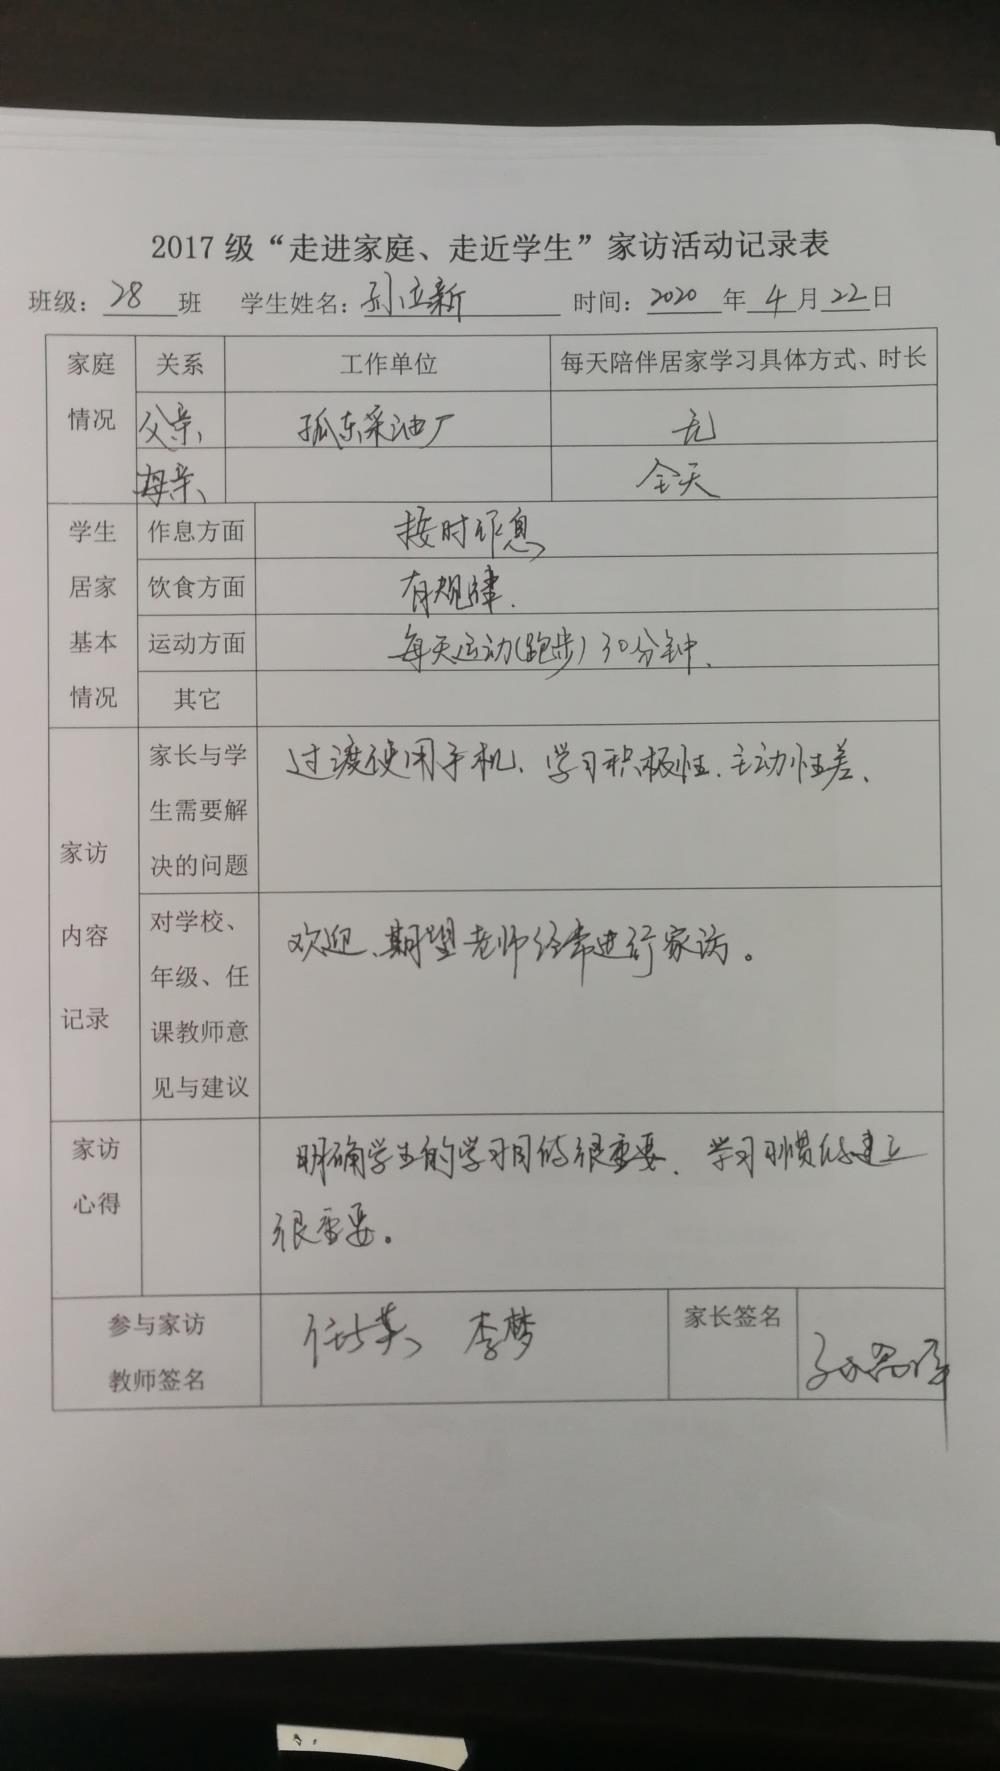 2017 级“走进家庭、走近学生”家访活动记录表
班级：28 班 学生姓名：孙立新 时间：2020 年 4 月 22 日
家庭情况 关系 工作单位 每天陪伴居家学习具体方式、时长
父亲 孤东采油厂 无
母亲 全天
学生居家基本情况 作息方面 按时作息
饮食方面 有规律.
运动方面 每天运动(跑步) 30分钟、
其它
家访内容记录
家长与学
生需要解
决的问题
过渡使用手机、学习积极性、主动性差、
对学校、
年级、任
课教师意
见与建议
欢迎、期望老师经常进行家访。
家访
心得
明确学生的学习目的很重要、学习习惯的建立
很重要。
参与家访
教师签名
李梦
家长签名